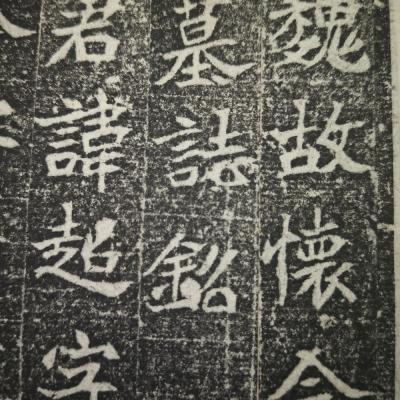 魏故懷令
墓誌銘
君諱超字